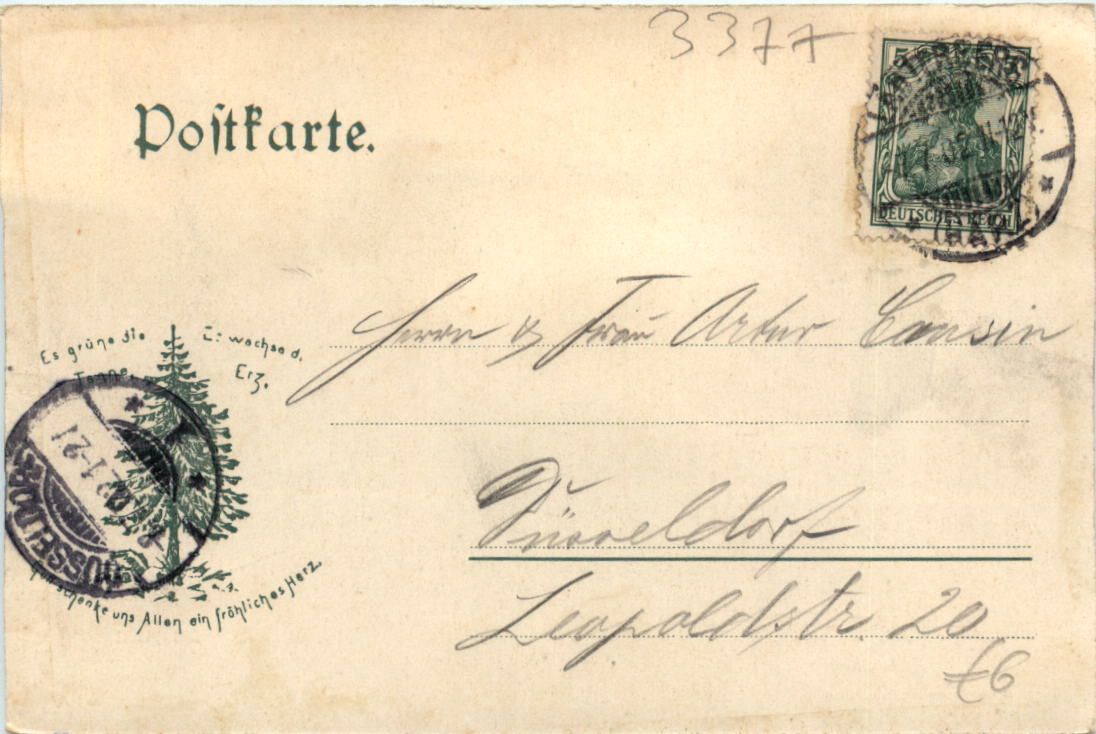 337A
Postkarte.
5
DEUTSCHES REICH
(HARZ)
Herrn & Frau Artur Cousin
Es grüne die
Tanne,
Es wachse d.
Erz,
DÜSSELDORF
Düsseldorf
schenke uns Allen ein fröhliches Herz.
Leopoldstr. 20
£6